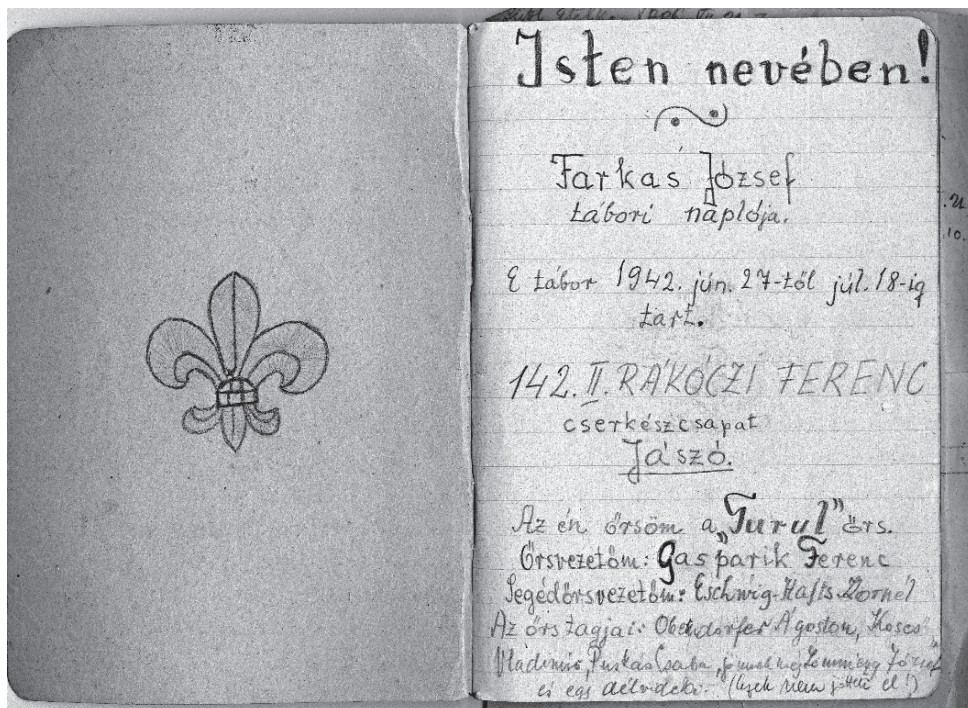 Isten nevében!
Farkas József
tábori naplója.
E tábor 1942. jún. 27-től júl. 18-ig
tart.
142. II. RÁKÓCZI FERENC
cserkészcsapat
Jászó.
Az én őrsöm a „Turul” őrs.
Őrsvezetőm: Gasparik Ferenc
Segédőrsvezetőm: Eschwig-Hajts Kornél
Az őrs tagjai: Obendorfer Ágoston, Kocsó
Vladimir, Puskás Csaba, József
és egy délvidéki. (Ezek nem jöttek el!)